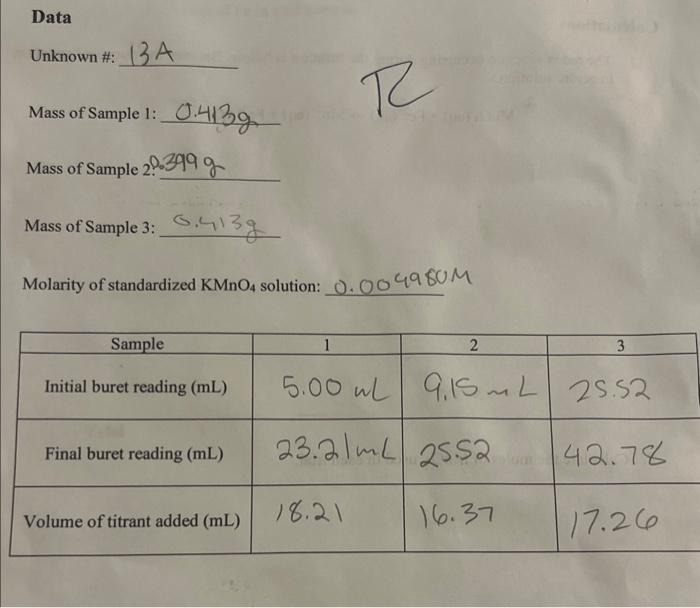 Data
Unknown #: 13A
Mass of Sample 1: 0.413g
Mass of Sample 2: 0.399 g
Mass of Sample 3: 0.413g
Molarity of standardized KMnO₄ solution: 0.004980M
Sample 1 2 3
Initial buret reading (mL) 5.00 mL 9.15 mL 25.52
Final buret reading (mL) 23.21mL 25.52 42.78
Volume of titrant added (mL) 18.21 16.37 17.26